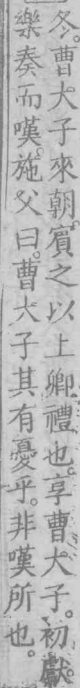 冬。曹大子來朝。賓之以上卿禮也。享曹大子。初獻。
樂奏而嘆。施父曰。曹大子其有憂乎。非嘆所也。